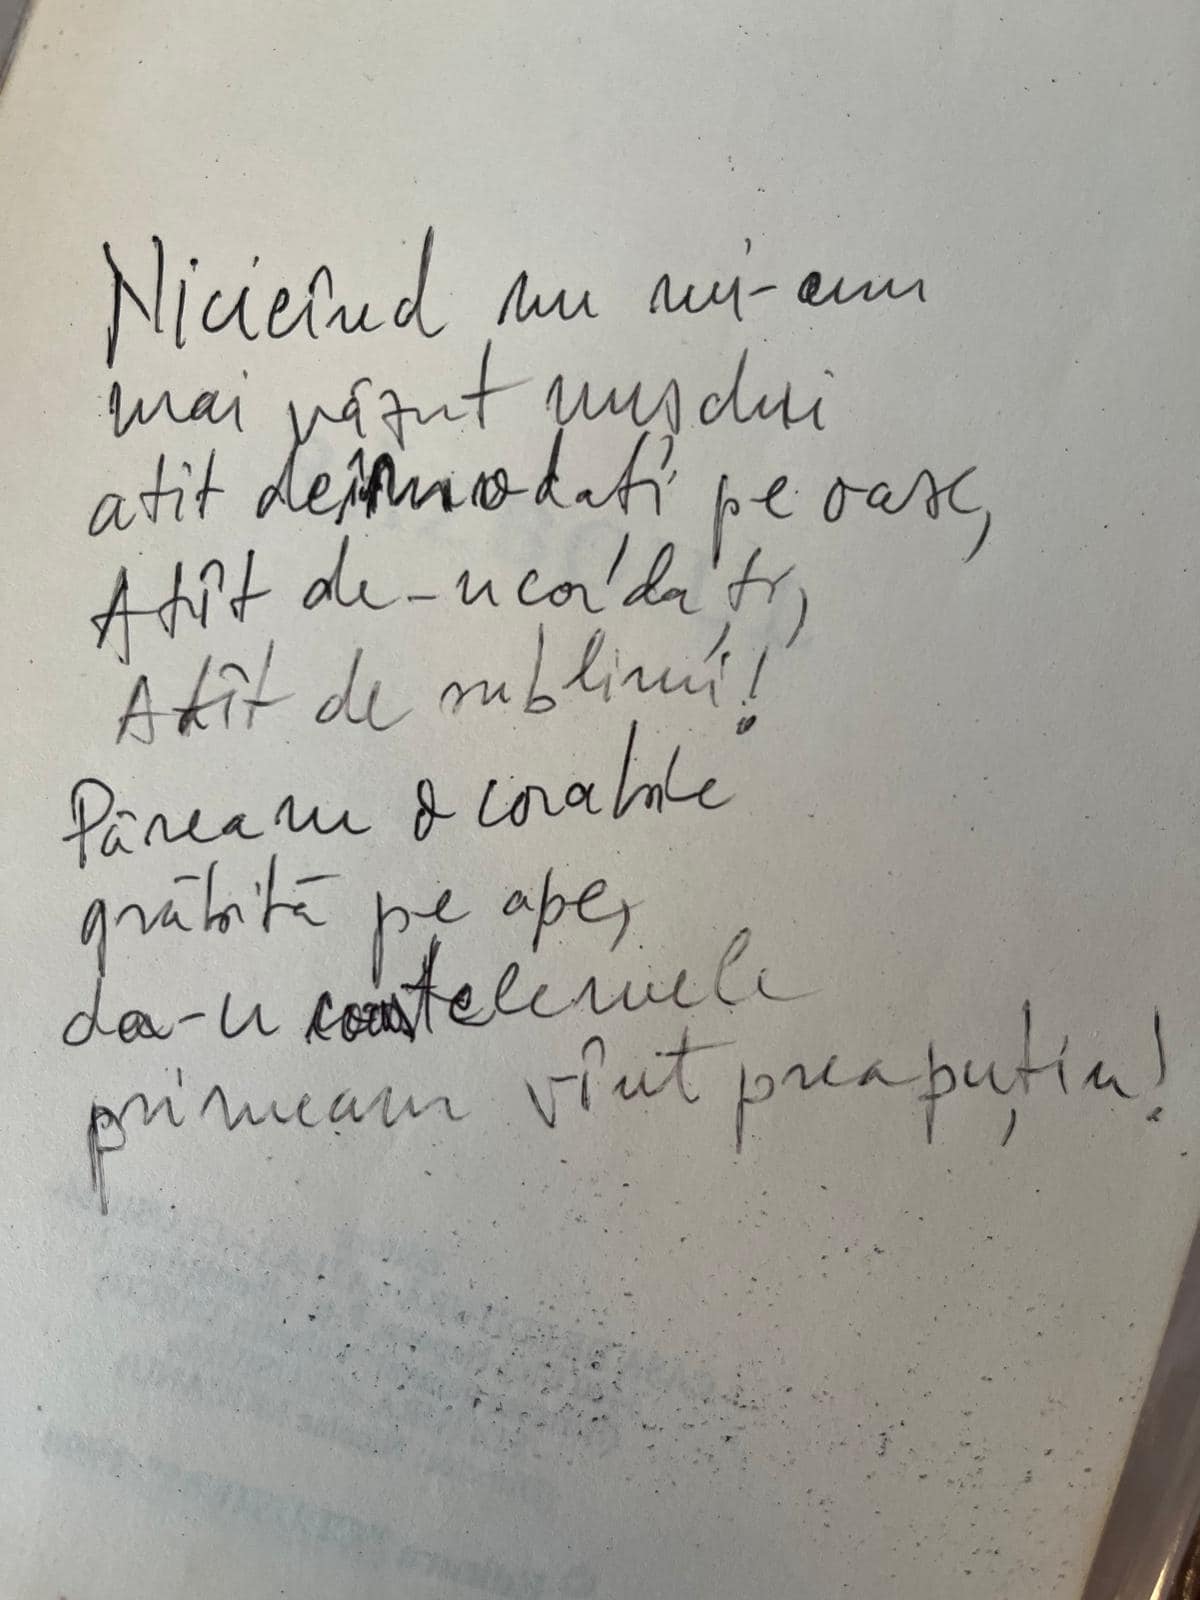 Nicicînd nu mi-am
mai văzut mușchii
atît de înnodați pe oase,
Atît de-ncordați,
Atît de sublimi!
Păream o corabie
grăbită pe ape,
da-n coastele mele
primeam vînt prea puțin!